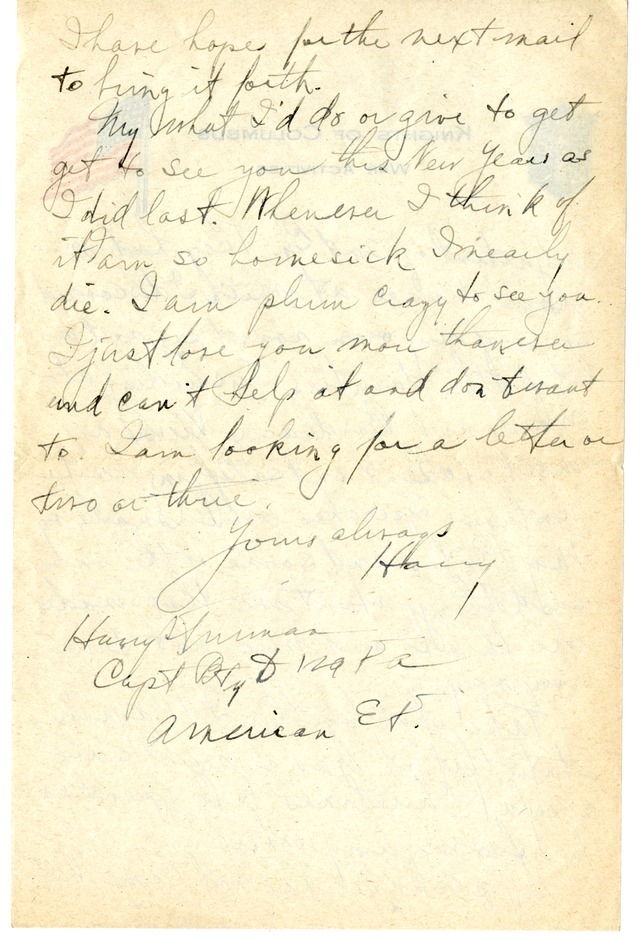 I have hope for the next mail
to bring it forth.
My what I'd do or give to get
get to see you this New Years as
I did last. Whenever I think of
it am so homesick I nearly
die. I am plum crazy to see you.
I just love you more than ever
and can't help it and don't want
to. I am looking for a letter or
two or three.
Yours always
Harry
Harry S Truman
Capt Bty D 129 F a
American E F.
KNIGHTS OF COLUMBUS
WAR ACTIVITIES